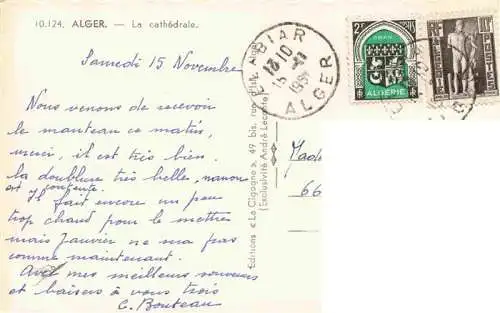 10.124. ALGER. — La cathédrale.
Samedi 15 Novembre
Nous venons de recevoir
le manteau ce matin,
merci, il est très bien.
la doublure très belle, manon
est contente.
Il fait encore un peu
trop chaud pour le mettre
mais Janvier ne sera pas
comme maintenant.
Avec mes meilleurs souvenirs
et baisers à vous tous
C. Bouteau
Editions « La Cigogne » 49 bis, rue
(Exclusivité André Leconte)
EL BIAR
18 10
15 -11
ALGER
2F
ORAN
ALGERIE
Mada
66